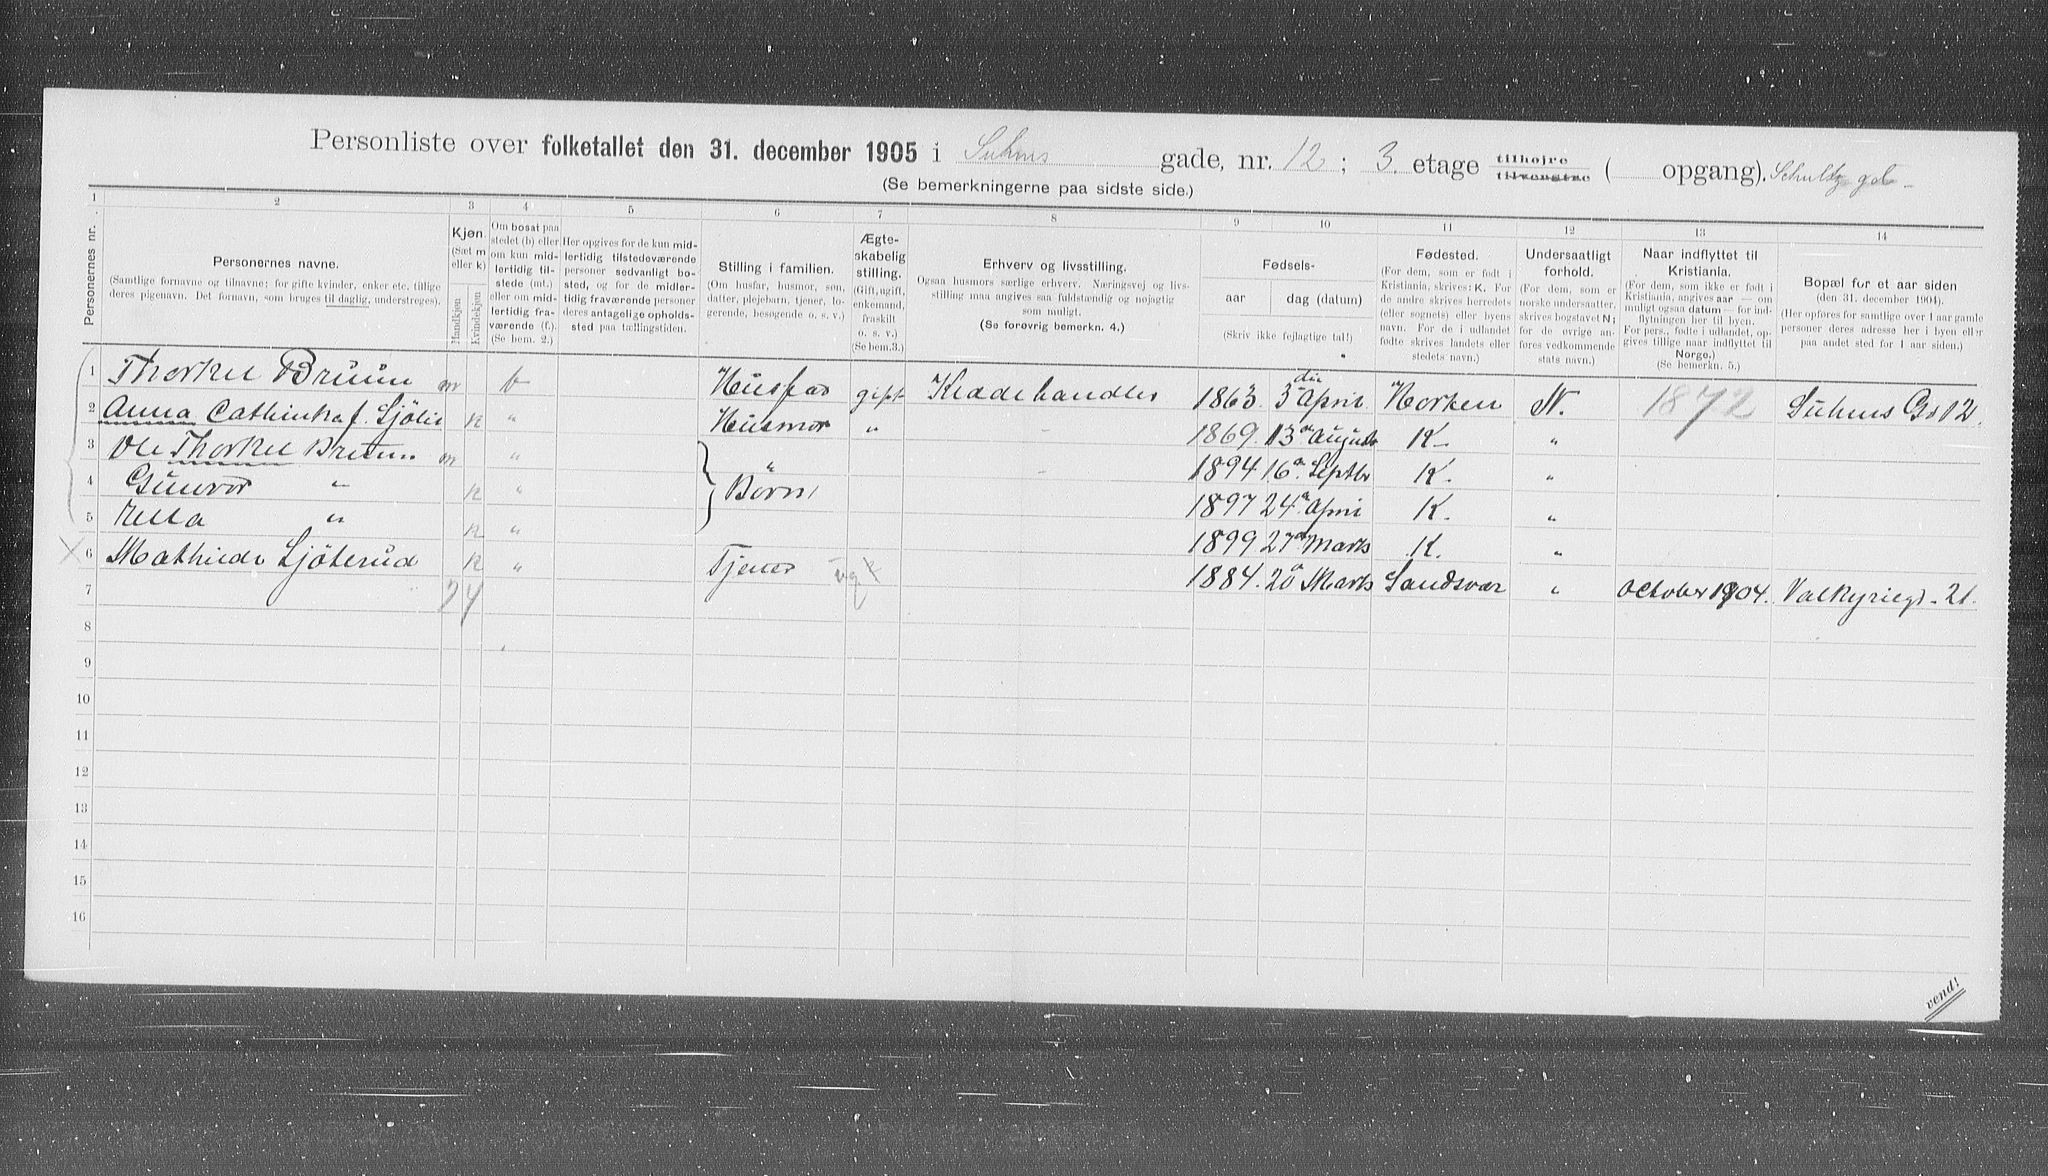 Personliste over folketallet den 31. december 1905 i Suhms gade, nr. 12; 3. etage tilhøjre tilvenstre ( opgang). Schultz gd.
(Se bemerkningerne paa sidste side.)
1 2 3 4 5 6 7 8 9 10 11 12 13 14
Personernes nr.
Personernes navne.
(Samtlige fornavne og tilnavne; for gifte kvinder, enker etc. tillige
deres pigenavn. Det fornavn, som bruges til daglig, understreges).
Kjøn.
(Sæt m
eller k)
Mandkjøn
Kvindekjøn
Om bosat paa
stedet (b) eller
om kun mid-
lertidig til-
stede (mt.)
eller om mid-
lertidig fra-
værende (f.).
(Se bem. 2.)
Her opgives for de kun mid-
lertidig tilstedeværende
personer sedvanligt bo-
sted, og for de midler-
tidig fraværende personer
deres antagelige opholds-
sted paa tællingstiden.
Stilling i familien.
(Om husfar, husmor, søn,
datter, plejebarn, tjener, lo-
gerende, besøgende o. s. v.)
Ægte-
skabelig
stilling.
(Gift, ugift,
enkemand,
fraskilt
o. s. v.)
(Se bem.3.)
Erhverv og livsstilling.
Ogsaa husmors særlige erhverv. Næringsvej og livs-
stilling maa angives saa fuldstændig og nøjagtig
som muligt.
(Se forøvrig bemerkn. 4.)
Fødsels-
aar dag (datum)
(Skriv ikke fejlagtige tal!)
Fødested.
(For dem, som er født i
Kristiania, skrives: K. For
de andre skrives herredets
(eller sognets) eller byens
navn. For de i udlandet
fødte skrives landets eller
stedets navn.)
Undersaatligt
forhold.
(For dem, som er
norske undersaatter,
skrives bogstavet N;
for de øvrige an-
føres vedkommende
stats navn.)
Naar indflyttet til
Kristiania.
(For dem, som ikke er født i
Kristiania, angives aar — om
muligt ogsaa datum — for ind-
flytningen her til byen.
For pers., fødte i udlandet, op-
gives tillige naar indflyttet til
Norge.)
(Se bemerkn. 5.)
Bopæl for et aar siden
(den 31. december 1904).
(Her opføres for samtlige over 1 aar gamle
personer deres adresse her i byen eller
paa andet sted for 1 aar siden.)
1 Thorkel Bruun m b Husfar gift Klædehandler 1863. 3die April Norken N. 1872 Suhms Gd 12.
2 Anna Cathinka f. Sjölie k " Husmor " - 1869. 13de August K. "
3 Ole Thorkel Bruun m " " - 1894 16de Septbr K. "
4 Gunvor " k " Børn 1897 24de April K. "
5 " k " 1899 27de Marts K. "
6 Mathilde Sjöterud k " Tjener ugt 1884. 20de Marts Sandsvær " October 1904. Valkyriegd. 21.
7 24
8
9
10
11
12
13
14
15
16
vend!